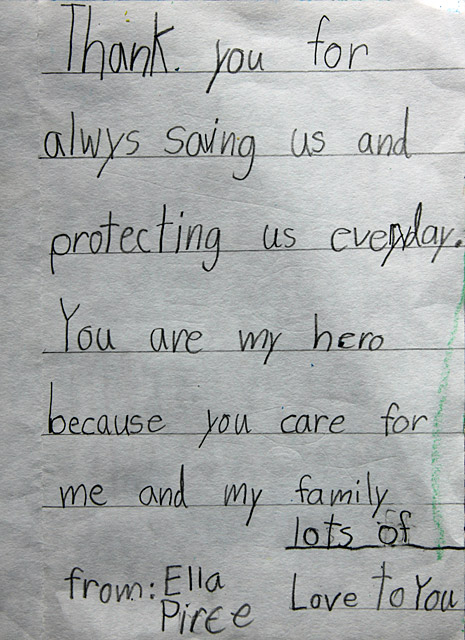 Thank. you for
alwys saving us and
protecting us everyday.
You are my hero
because you care for
me and my family
lots of
from: Ella Love to You
Pirce